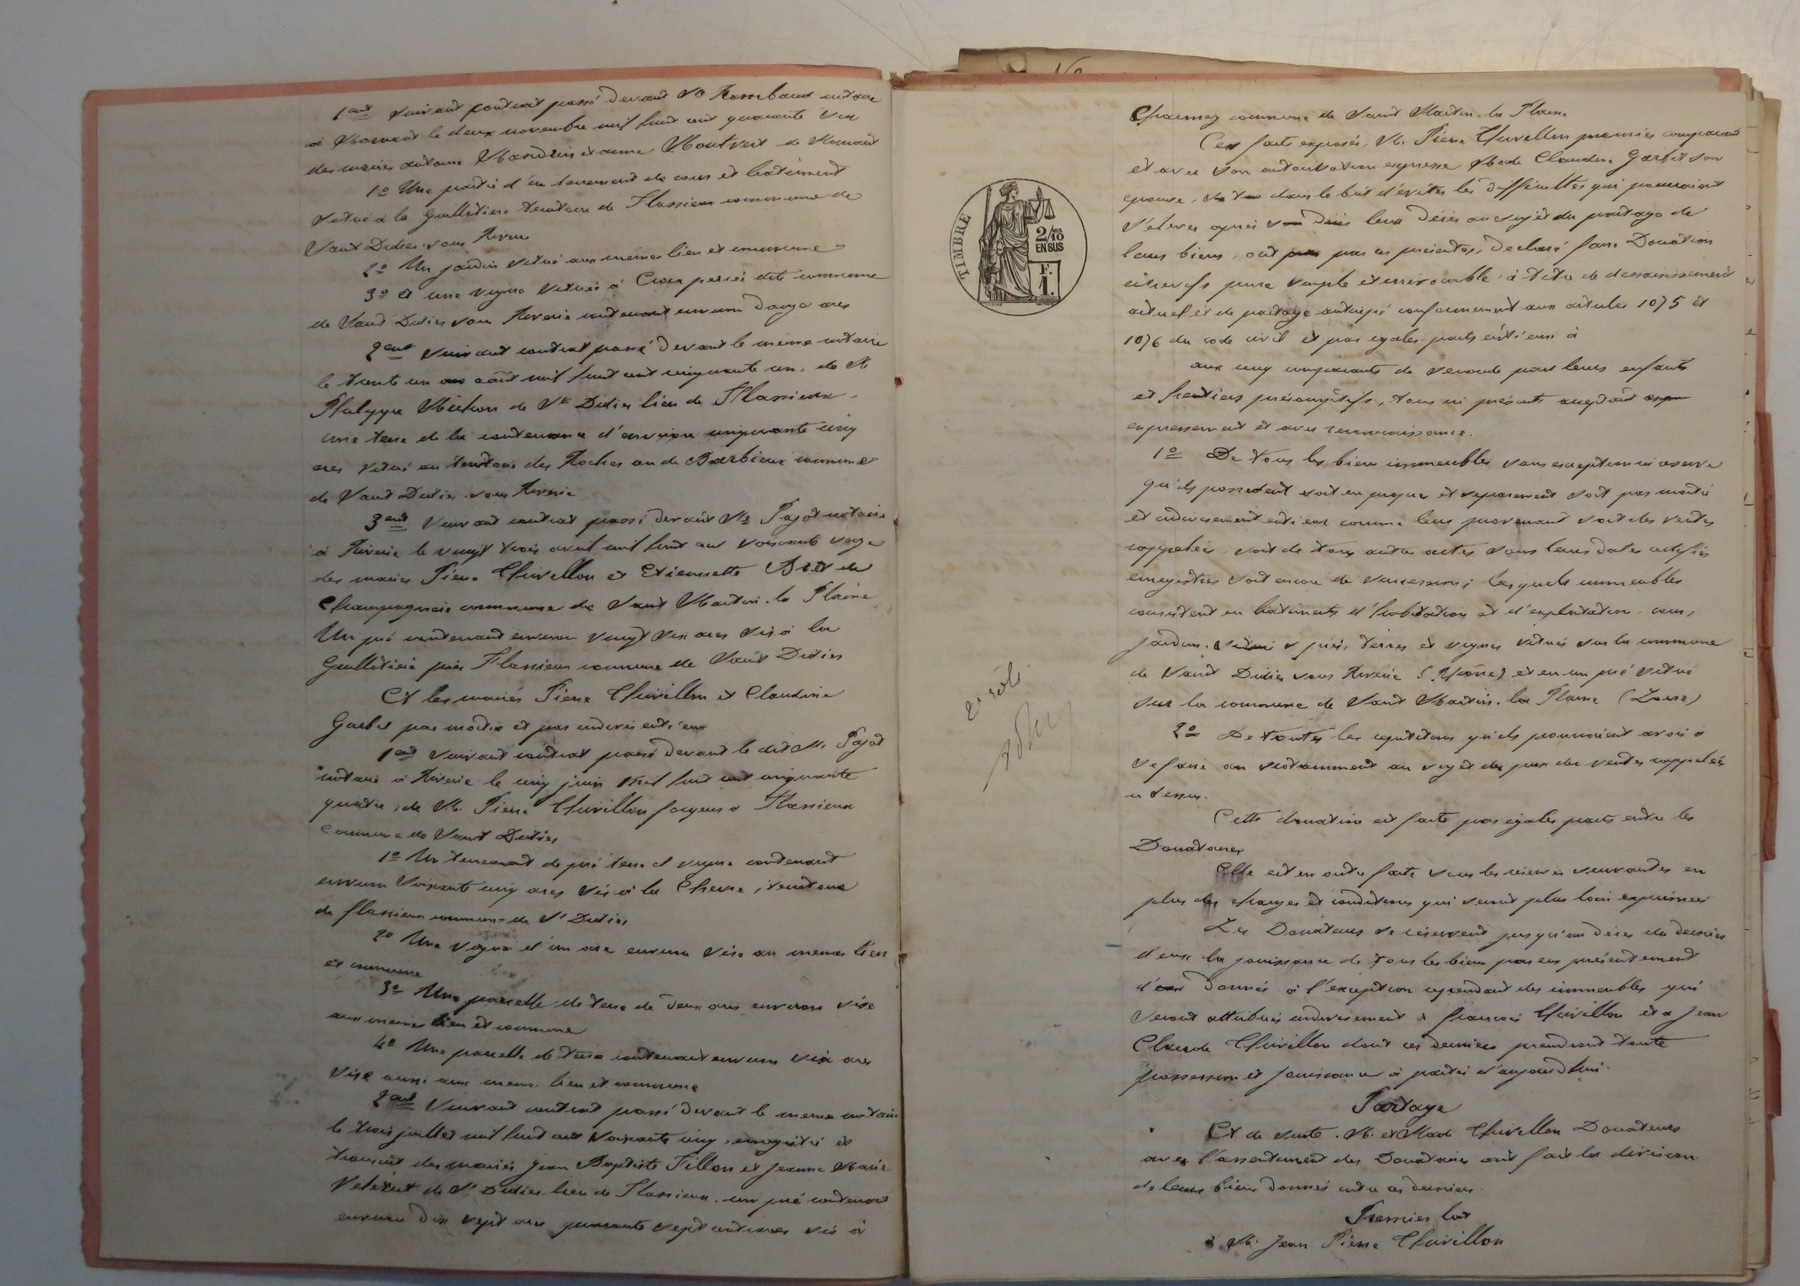 1ent suivant contrat passé devant Me Rambaud notaire
à Mornant le deux novembre mil huit cent quarante six
des mariés Antoine Mandrin et Anne Montvert de Mornant
1º Une partie d'un tenement de cour et bâtiment
situé à la Guilletière territoire de Flassieux commune de
Saint Didier sous Riverie
2º Un jardin situé aux mêmes lieu et commune
3º et une vigne située à Croix percée dite commune
de Saint Didier sous Riverie contenant environ douze ares
2ent suivant contrat passé devant le même notaire
le trente un août mil huit cent cinquante un, de M
Philippe Michon de St Didier lieu de Flassieux
une terre de la contenance d'environ cinquante cinq
ares situé au territoire des Roches ou de Barbieux commune
de Saint Didier sous Riverie
3ent suivant contrat passé devant Me Pajot notaire
à Riverie le vingt trois avril mil huit cent soixante seize
des mariés Pierre Chuvillon et Etiennette Bret de
Champagnaie commune de Saint Martin la Plaine
Un pré contenant environ vingt six ares sis à la
Guilletière près Flassieux commune de Saint Didier
Et les mariés Pierre Chuvillon et Claudine
Garbit par moitié et par indivis entr'eux
1ent suivant contrat passé devant le dit Me Pajot
notaire à Riverie le cinq juin mil huit cent cinquante
quatre, de M. Pierre Chuvillon à Flassieux
commune de Saint Didier
1º Un tenement de pré terre et vigne contenant
environ soixante cinq ares sis à la territoire
de flassieux commune de St Didier
2º Une vigne d'un are environ sise au memes lieu
et commune
3º Une parcelle de terre de deux ares environ sise
aux memes lieu et commune
4º Une parcelle de terre contenant environ six ares
sise aussi aux memes lieu et commune
2ent suivant contrat passé devant le meme notaire
le trois juillet mil huit cent soixante cinq, enregistré et
transcrit des mariés Jean Baptiste Fillon et Jeanne Marie
de St Didier lieu de Flassieux un pré contenant
environ dix sept ares quarante sept centiares sis à
TIMBRE
2/10 EN SUS
F. 1.
commune de Saint Martin la Plaine
Ces faits exposés, M. Pierre Chuvillon premier comparant
et avec son autorisation expresse Made Claudine Garbit son
épouse, dans le but d'éviter les difficultés qui pourraient
s'élever après leur décès au sujet du partage de
leurs biens, ont par ces présentes, déclaré faire Donation
entrevifs pure simple et irrévocable à titre de dessaisissement
actuel et de partage anticipé conformément aux articles 1075 et
1076 du code civil et par égales parts entr'eux à
aux cinq comparants de seconde part leurs enfants
et héritiers présomptifs, tous ici présents acceptant
expressement et avec reconnaissance.
1º De tous les biens immeubles sans exception ni reserve
qu'ils possedent soit en propre et séparement soit par moitié
et indivisement entr'eux comme leur provenant soit des ventes
rappelées, soit de tous autres actes sous leurs dates
enregistrés soit encore de successions; lesquels immeubles
consistent en bâtiments d'habitation et d'exploitation, cour,
jardin, prés, terres et vignes situés sur la commune
de Saint Didier sous Riverie (Rhône) et en un pré situé
sur la commune de Saint Martin la Plaine (Loire)
2º De toutes les répétitions qu'ils pourraient avoir à
se faire notamment au sujet du prix des ventes rappelées
ci dessus.
Cette donation est faite par égales parts entre les
Donataires
Elle est en outre faite sous les réserves suivantes en
plus des charges et conditions qui seront plus loin exprimées
Les Donateurs se réservent jusqu'au décès du dernier
d'eux la jouissance de tous les biens par eux présentement
donnés à l'exception cependant des immeubles qui
seront attribués indivisement à François Chuvillon et à Jean
Claude Chuvillon dont ces derniers prendront toute
possession et jouissance à partir d'aujourd'hui.
Partage
Et de suite, M. et Made Chuvillon Donateurs
avec l'assentiment des Donataires ont fait la division
de leurs biens donnés entre ces derniers.
Premier lot
à M. Jean Pierre Chuvillon